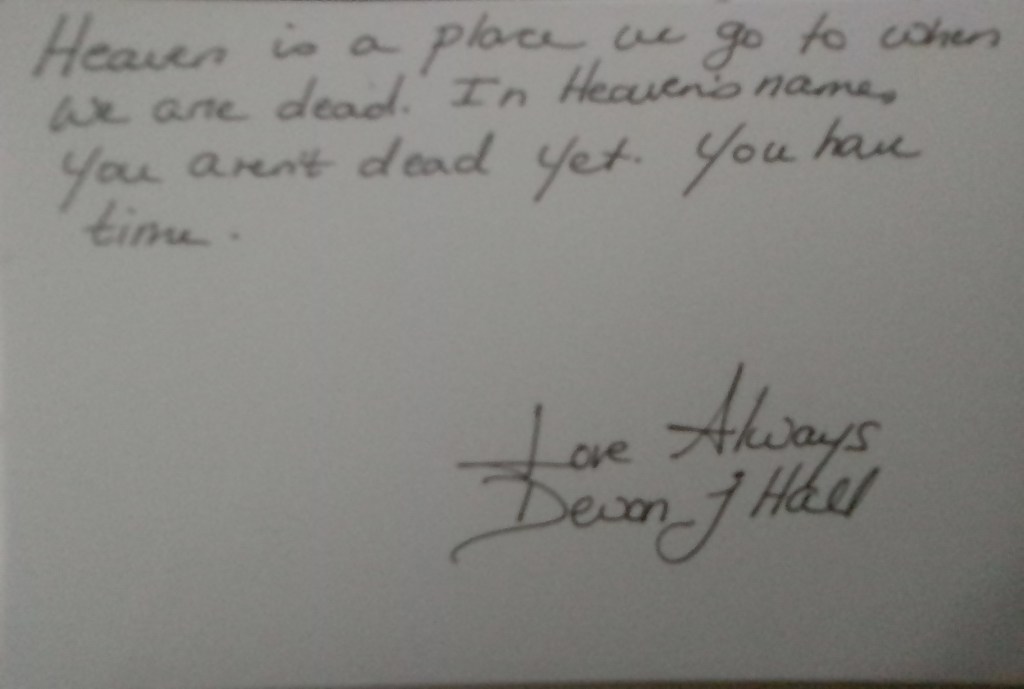 Heaven is a place we go to when
we are dead. In Heaven's name,
You aren't dead yet. You have
time.
Love Always
Devon J Hall